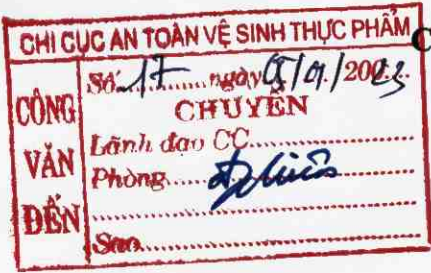 CHI CỤC AN TOÀN VỆ SINH THỰC PHẨM
CÔNG VĂN ĐẾN
Số 17 ngày /200
CHUYỂN
Lãnh đạo CC
Phòng
Sao